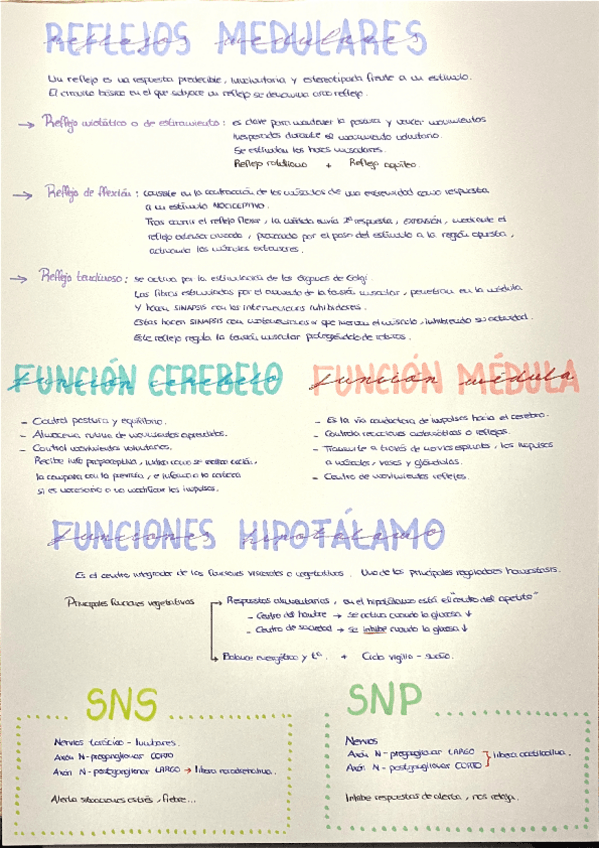 REFLEJOS MEDULARES
Un reflejo es una respuesta predecible, involuntaria y estereotipada frente a un estímulo.
El circuito básico en el que subyace un reflejo se denomina arco reflejo.
→ Reflejo miotático o de estiramiento: es clave para mantener la postura y vencer movimientos
inesperados durante el movimiento voluntario.
Se estimulan los husos musculares.
Reflejo rotuliano + Reflejo aquíleo.
→ Reflejo de flexión: consiste en la contracción de los músculos de una extremidad como respuesta
a un estímulo NOCICEPTIVO.
Tras ocurrir el reflejo flexor, la médula envía 2ª respuesta, extensión, mediante el
reflejo extensor cruzado, provocado por el paso del estímulo a la región opuesta,
activando los músculos extensores.
→ Reflejo tendinoso: se activa por la estimulación de los órganos de Golgi.
Las fibras estimuladas por el aumento de la tensión muscular, penetran en la médula
y hacen SINAPSIS con las interneuronas inhibidoras.
Estas hacen SINAPSIS con motoneuronas α que inervan el músculo, inhibiendo su actividad.
Este reflejo regula la tensión muscular protegiéndolo de roturas.
FUNCIÓN CEREBELO
- Control postura y equilibrio.
- Almacena rutina de movimientos aprendidos.
- Control movimientos voluntarios.
Recibe info propioceptiva,
la compara con la prevista, e informa a la corteza
si es necesario o no modificar los impulsos.
FUNCIÓN MÉDULA
- Es la vía conductora de impulsos hacia el cerebro.
- Controla reacciones automáticas o reflejos.
- Transmite a través de nervios espinales, los impulsos
a músculos, vasos y glándulas.
- Centro de movimientos reflejos.
FUNCIONES HIPOTÁLAMO
Es el centro integrador de las funciones viscerales o vegetativas. Uno de los principales reguladores homeostasis.
Principales funciones vegetativas
→ Respuestas alimentarias, en el hipotálamo está el "centro del apetito"
- Centro del hambre → se activa cuando la glucosa ↓
- Centro de saciedad → se inhibe cuando la glucosa ↓
→ Balance energético y tª. + Ciclo vigilia - sueño.
SNS
Nervios torácico - lumbares.
Axón N-preganglionar CORTO
Axón N-postganglionar LARGO → libera noradrenalina.
Alerta situaciones estrés, fiebre...
SNP
Nervios
Axón N-preganglionar LARGO
Axón N-postganglionar CORTO } libera acetilcolina.
Inhibe respuestas de alerta, nos relaja.